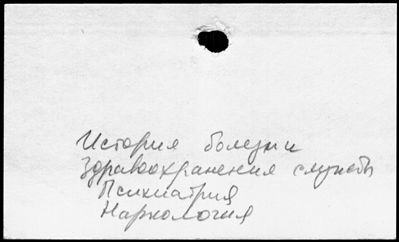 История болезни
Здравоохранения службы
Психиатрия
Наркология